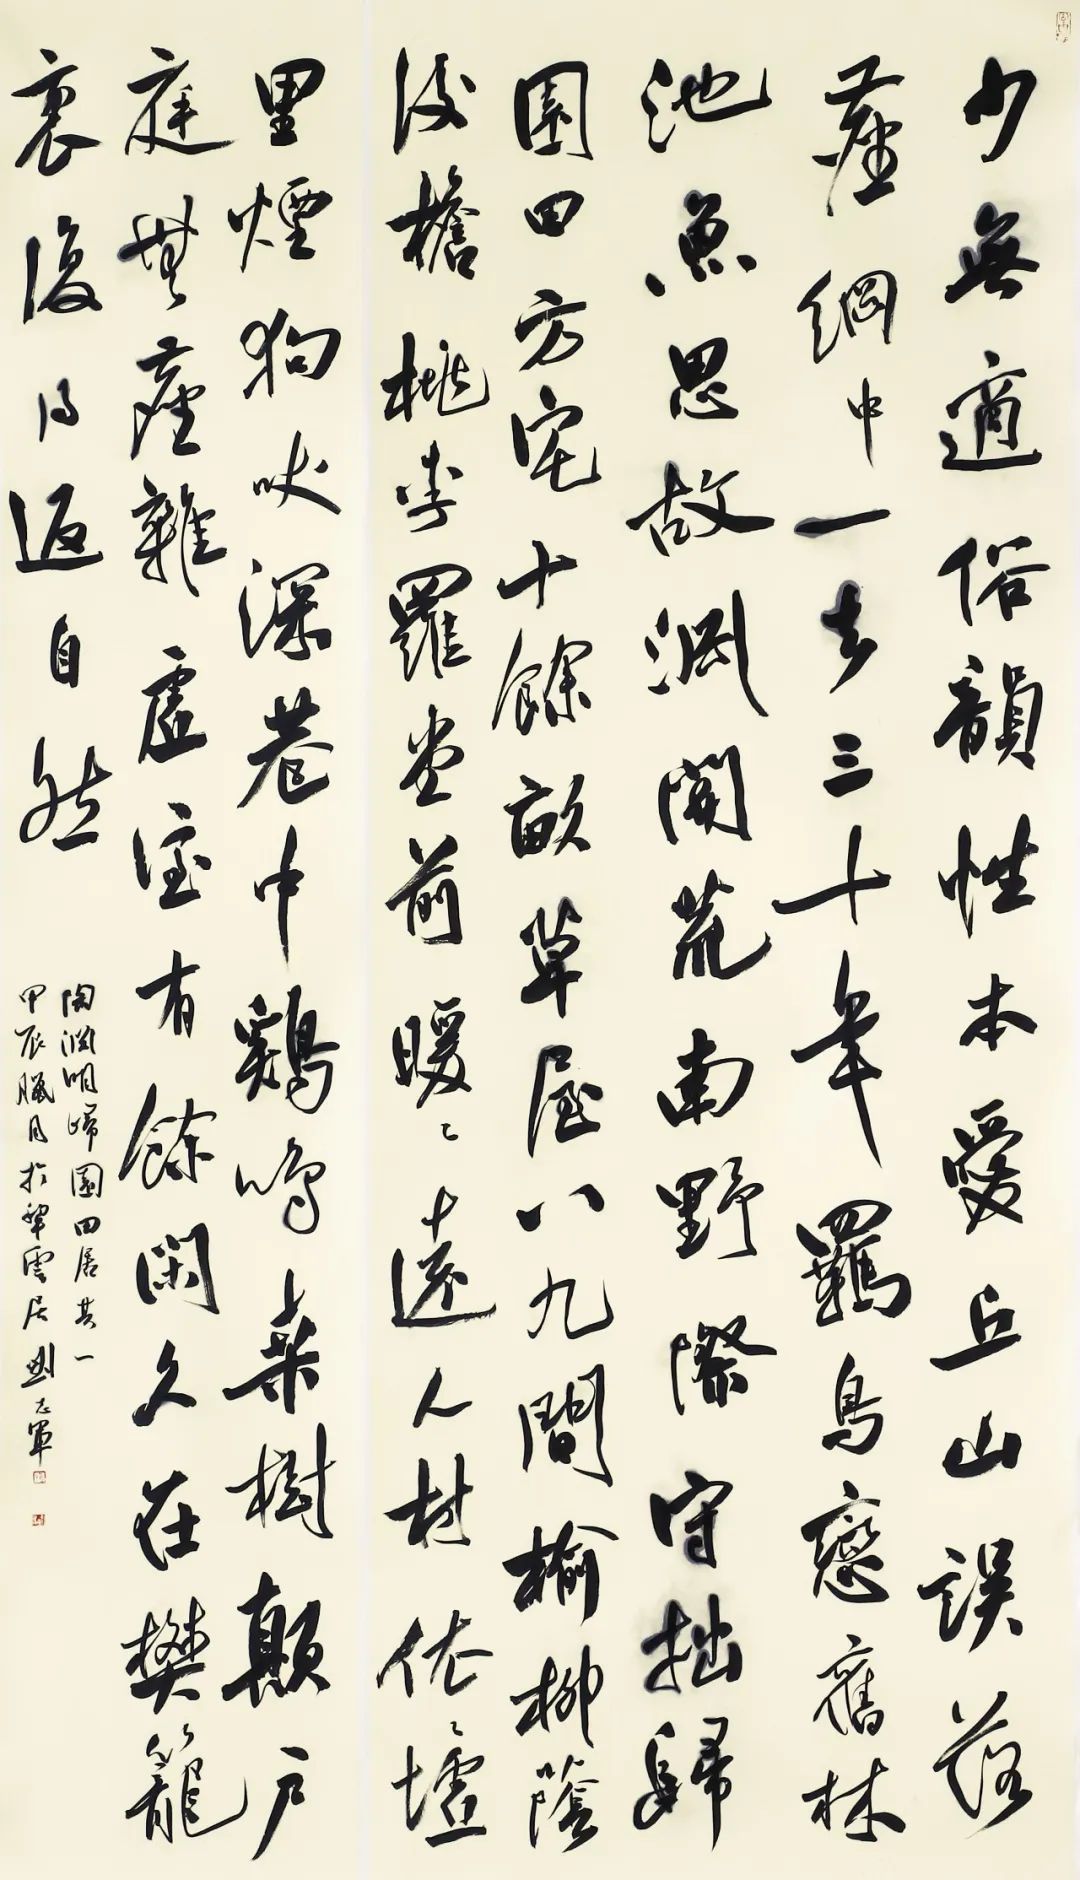 少無適俗韻性本愛丘山誤落
塵網中一去三十年羈鳥戀舊林
池魚思故淵開荒南野際守拙歸
園田方宅十餘畝草屋八九間榆柳蔭
後檐桃李羅堂前暖〻遠人村依〻墟
里煙狗吠深巷中鷄鳴桑樹顛戶
庭無塵雜虛室有餘閑久在樊籠
裏復得返自然
陶淵明歸園田居其一
甲辰臘月於雲居劉志軍